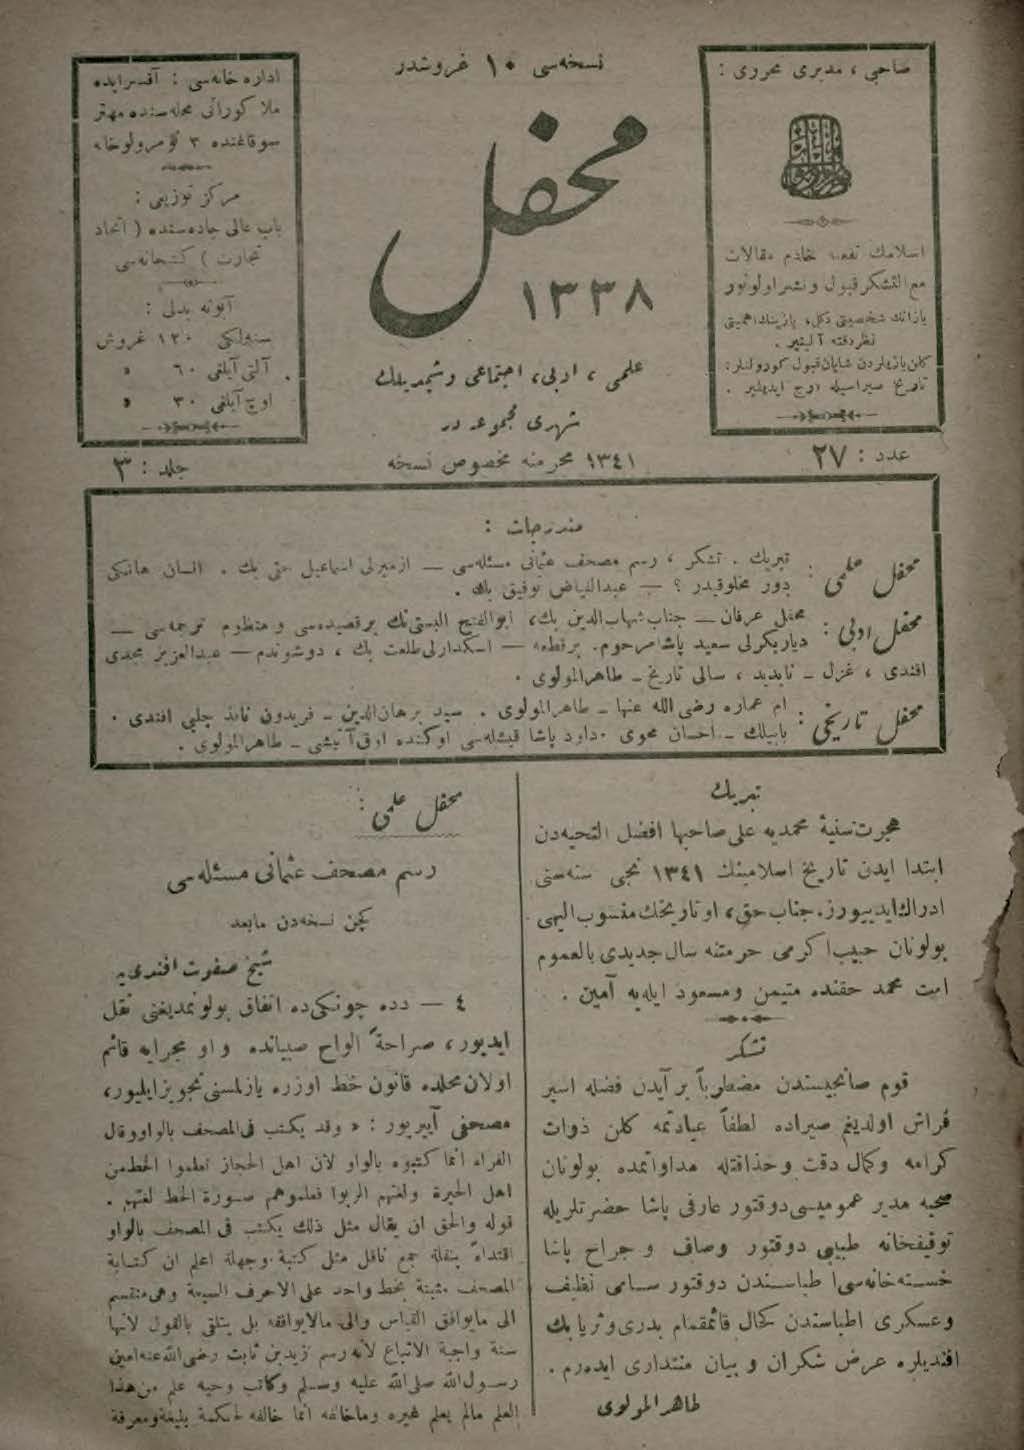 صاحبی ، مدیری محرری :
اسلامك نفعنه خادم مقالات
مع التشكر قبول ونشر اولونور
یازانك شخصیتی دكل ، یازینك اهمیتی
نظر دقته آلینیر .
كلن یازیلردن شایان قبول كورولنلر :
تاریخ صیراسیله درج ایدیلیر .
نسخه‌سی ١٠ غروشدر
محفل
١٣٣٨
علمی ، ادبی ، اجتماعی
شهری مجموعه در
اداره خانه‌سی : آقسرایده
ملا كورانی محله‌سنده
سوقاغنده ٣ نومرولو خانه
مركز توزیعی :
باب عالی جاده‌سنده ( اتحاد
تجارت ) كتبخانه‌سی
آبونه بدلی :
سنه‌لكی ١٢٠ غروش
آلتی آیلغی ٦٠ »
اوچ آیلغی ٣٠ »
عدد : ٢٧
١٣٤١ محرمنه مخصوص نسخه
جلد : ٣
مندرجات :
محفل علمی : تبریك . تشكر ، رسم مصحف عثمانی مسئله‌سی — ازمیرلی اسماعیل حقی بك . انسان هانكی
دور مخلوقیدر ؟ — عبدالفیاض توفیق بك .
محفل ادبی : محفل عرفان — جناب شهاب‌الدین بك ، ابوالفتح البستی‌نك برقصیده‌سی و منظوم ترجمه‌سی —
دیاربكرلی سعید پاشا مرحوم . برقطعه — اسكدارلی طلعت بك ، دوشوندم — عبدالعزیز مجدی
افندی ، غزل — ندیدی ، سال تاریخ — طاهرالمولوی .
محفل تاریخی : ام عماره رضی الله عنها — طاهرالمولوی . سید برهان‌الدین — فریدون نافذ چلبی افندی .
بابیلك — احسان محوی . داود پاشا قیشله‌سی اوكنده اوق آتیشی — طاهرالمولوی .
تبریك
هجرت سنیۀ محمدیه علی صاحبها افضل التحیه‌دن
ابتدا ایدن تاریخ اسلامینك ١٣٤١ نجی سنه‌سنی
ادراك ایدییورز . جناب حق ، او تاریخك منسوب الیهی
بولونان حبیب اكرمی حرمتنه سال جدیدی بالعموم
امت محمد حقنده متیمن ومسعود ایله‌یه آمین .
تشكر
قوم صانجیسندن مضطرباً بر آیدن فضله اسیر
فراش اولدیغم صیراده لطفاً عیادتمه كلن ذوات
كرامه وكمال دقت وحذاقتله مداواتمده بولونان
صحیه مدیر عمومیسی دوقتور عارفی پاشا حضرتلریله
توقیفخانه طبیبی دوقتور وصاف و جراح پاشا
خسته‌خانه‌سی اطباسندن دوقتور سامی نظیف
وعسكری اطباسندن كحال قائمقام بدری وثریا بك
افندیلره عرض شكران و بیان منتداری ایده‌رم .
طاهرالمولوی
محفل علمی :
رسم مصحف عثمانی مسئله‌سی
كچن نسخه‌دن مابعد
شیخ صفوت افندی‌یه
٤ — دده چونكی‌ده اتفاق بولونمدیغنی نقل
ایدیور ، صراحةً الواح صبیانده واو مجرایه قائم
اولان محلده قانون خط اوزره یازلمسنی تجویز ایلیور ،
مصحفی آییریور : » وقد یكتب فی المصحف بالواو وقال
الفراء انما كتبوه بالواو لان اهل الحجاز تعلموا الخط من
اهل الحیرة ولغتهم الربوا فعلموهم صورة الخط لغتهم .
قوله والحق ان یقال مثل ذلك یكتب فی المصحف بالواو
اقتداءً بنقله جمع ناقل مثل كتبة وجهلة اعلم ان كتابة
المصحف مثبتة بخط واحد علی الاحرف السبعة وهی منقسم
الی مایوافق القیاس والی مالایوافقه بل یتلقی بالقبول لانها
سنة واجبة الاتباع لانه رسم زیدبن ثابت رضی الله عنه امین
رسول الله صلی الله علیه وسلم وكاتب وحیه علم من هذا
العلم مالم یعلم غیره وماخالفه خالفه انما لحكمة بلیغة ومعرفة